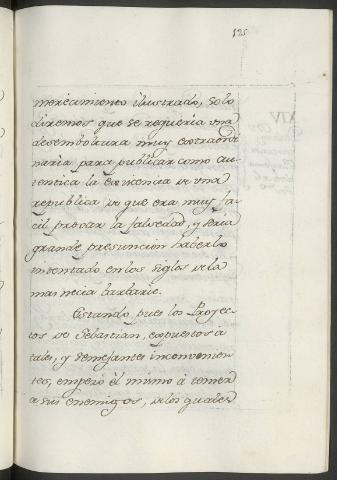 125
merecimiento ilustrado, solo
diremos que se requeria una
desemboltura muy extraordi
naria para publicar como au
tentica la existencia de una
republica de que era muy fa
cil provar la falsedad, y seria
grande presuncion haberlo
intentado en los siglos de la
mas necia barbarie.
Estando pues los Proyec
tos de Sebastian, expuestos a
tales, y semejantes inconvenien
tes, empezò èl mismo à temer
a sus enemigos, de los quales
XIV